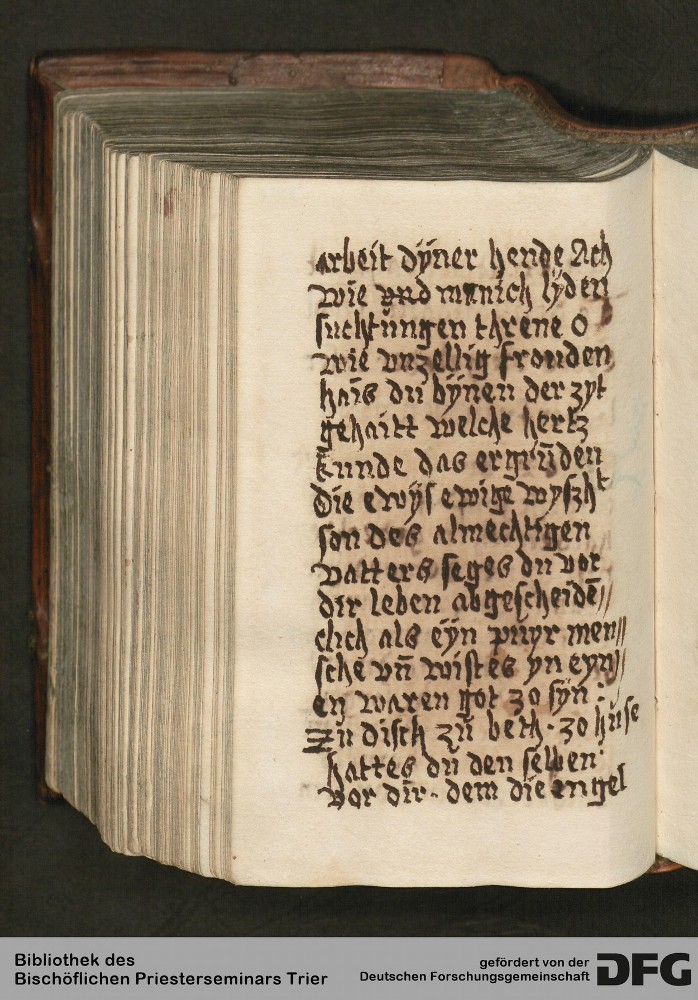 arbeit dÿner hende Ach
wie vnd manich lÿden
suchtungen threne O
wie vnzellig frouden
hais du bÿnen der zyt
gehaitt welche hertz
kunde das ergrŭden
die ewÿs ewige wyszht
son des almechtigen
vatters seges du vor
dir leben abgescheidē//
clich als eÿn puyr men//
sche vn̄ wistes yn eyn//
en waren got zo syn ·
Zu disch zŭ beth · zo huse
hattes dŭ den selben
vor dir · dem die engel
Bibliothek des
Bischöflichen Priesterseminars Trier
gefördert von der
Deutschen Forschungsgemeinschaft
DFG